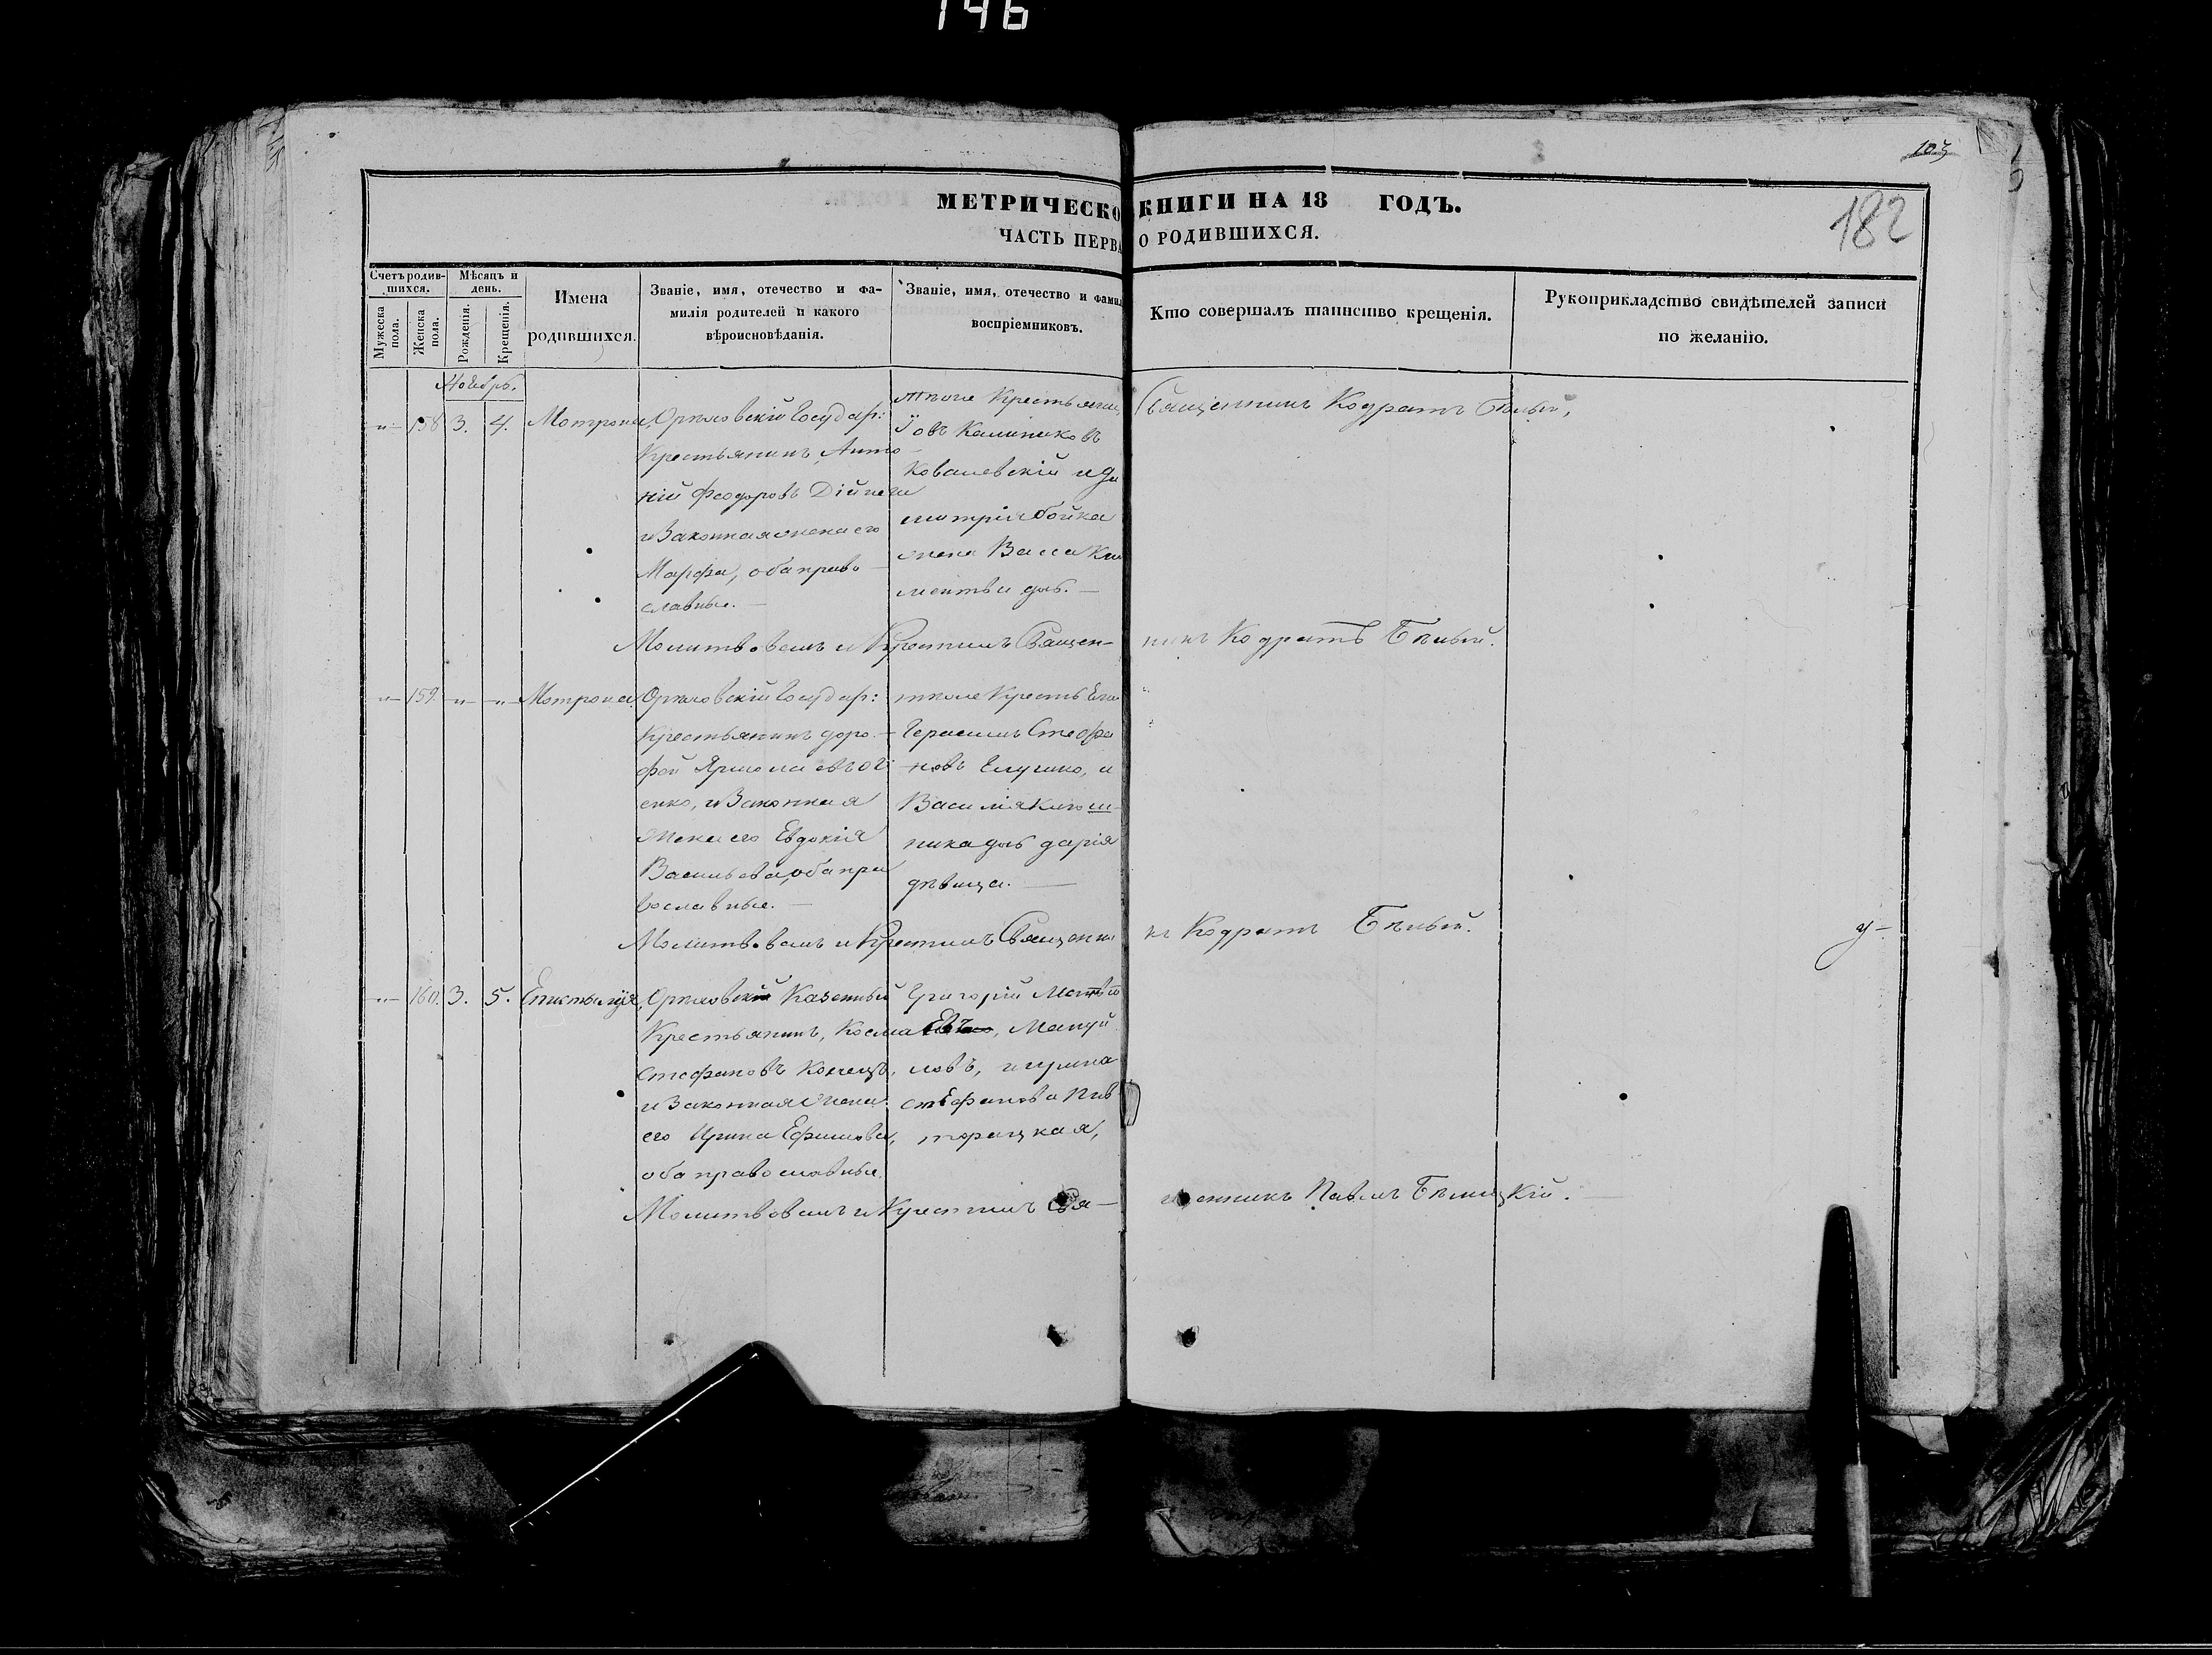 146
103
182
МЕТРИЧЕСКО КНИГИ НА 18 ГОДЪ.
ЧАСТЬ ПЕРВА О РОДИВШИХСЯ.
Счетъ родив-
шихся.
Мужеска
пола.
Женска
пола.
Мѣсяцъ и
день.
Рожденія.
Крещенія.
Имена
родившихся.
Званіе, имя, отечество и фа-
милія родителей и какого
вѣроисновѣданія.
Званіе, имя, отечество и фамил
воспріемниковъ.
Кто совершалъ таинство крещенія.
Рукоприкладство свидѣтелей записи
по желанію.
Ноябрь.
-"- 158 3. 4. Мотрона
Орѣховскій Государ:
Крестьянинъ, Анто-
ній Феодоровъ Дійнега
и Законная жена его
Марфа, оба право-
славные. —
Крестьяни,
Іовъ Калиниковъ
Ковалевскій и Ди
митрія бойка
жена Васса Кли
ментьи дщъ. —
Священникъ Кодратъ Бѣлый,
Молитвовалъ и Крестилъ Священ- никъ Кодратъ Бѣлый.
-"- 159. -"- -"- Мотрона
Орѣховскій Государ:
Крестьянинъ доро-
фей
енко, и Законная
Жена его Евдокія
Васильева, оба пра
вославные. —
Герасимъ Стефа
новъ и
Василія Ключ-
ника дщъ дарія
дѣвица. —
Молитвовалъ и Крестилъ Священни къ Кодратъ Бѣлый.
У-
-"- 160. 3. 5. Епистилія,
Орѣховскій Казенный
Крестьянинъ, Косма
Стефановъ Конецъ,
и Законная Жена
его Ирина Ефимова,
оба православные.
Григорій Матвѣ
евъ, Мануй
ловъ, и ирина
стефанова Пив
торацкая,
Молитвовалъ и Крестилъ Свя- щенникъ Павелъ Бѣлицкій.